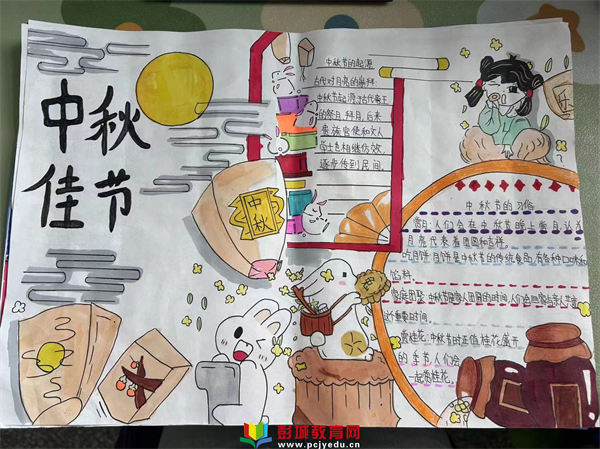 中秋
佳节
中秋
中秋节的起源
古代对月亮的崇拜
中秋节起源于古代帝王
的祭月、拜月，后来
贵族官使和文人
学士也相继仿效，
逐步传到民间。
中秋节的习俗
赏月：人们会在中秋节晚上赏月，认为
月亮代表着团圆和吉祥。
吃月饼：月饼是中秋节的传统食品，有各种口味和
馅料。
家庭团聚：中秋节是家人团圆的时间，人们会回家与亲人共度
这个重要时间。
赏桂花：中秋节时正值桂花盛开
的季节，人们会
一起赏桂花。
彭城教育网
www.pcjyedu.cn